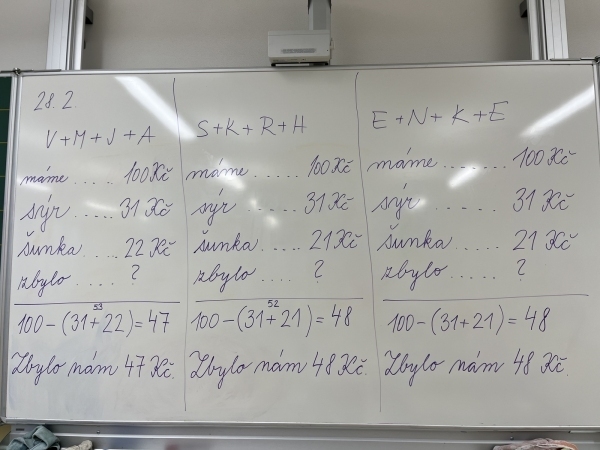 28. 2.
V + M + J + A
máme ..... 100 Kč
sýr ..... 31 Kč
šunka .... 22 Kč
zbylo .... ?
53
100 - (31 + 22) = 47
Zbylo nám 47 Kč.
S + K + R + H
máme ..... 100 Kč
sýr ..... 31 Kč
šunka .... 21 Kč
zbylo .... ?
52
100 - (31 + 21) = 48
Zbylo nám 48 Kč.
E + N + K + E
máme ...... 100 Kč
sýr ..... 31 Kč
šunka ..... 21 Kč
zbylo ..... ?
100 - (31 + 21) = 48
Zbylo nám 48 Kč.